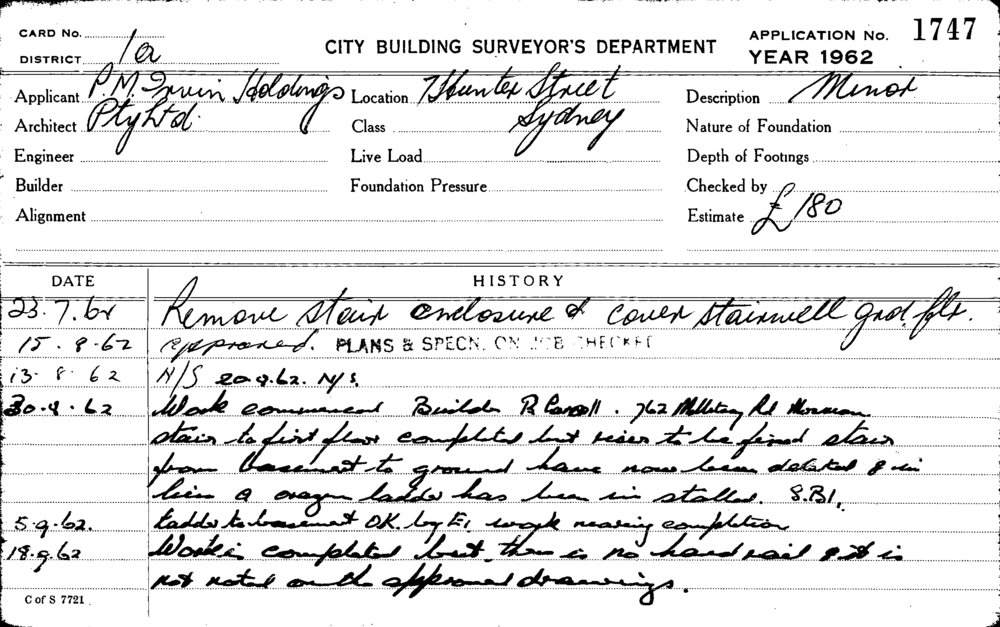 CARD No. 1
DISTRICT 1a
CITY BUILDING SURVEYOR'S DEPARTMENT
APPLICATION No. 1747
YEAR 1962
Applicant P.M. Irvin Holdings
Location 7 Hunter Street
Description Minor
Architect Pty Ltd.
Class Sydney
Nature of Foundation
Engineer
Live Load
Depth of Footings
Builder
Foundation Pressure
Checked by
Alignment
Estimate £180
DATE
HISTORY
23.7.62 Remove stair enclosure & cover stairwell grd. flr.
15.8.62 approved. PLANS & SPECN. ON JOB CHECKED
13.8.62 N/S 20.8.62. N/S.
30.8.62 Work commenced Builder R 762 Military Rd Mosman
stair to first floor completed but riser to be fixed stair
from basement to ground have now been deleted & in
lieu a ladder has been in stalled. S.B.I.
5.9.62. Ladder to basement OK. by work nearing completion
18.9.62 Work is completed but there is no hand rail & it is
not noted on the approved drawings.
C of S 7721